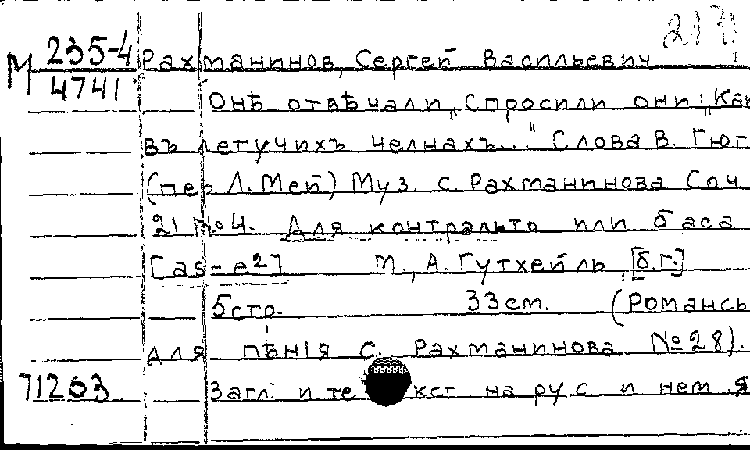 213
М 235-4 Рахманинов, Сергей Васильевич
4741
Онѣ отвѣчали „Спросили они: „Как
въ летучихъ челнахъ..." Слова В. Гюг
(пер Л. Мей) Муз. С. Рахманинова Соч
21 №4. Для контральто или баса
[as-e²] М., А. Гутхейль, [б.г.]
5стр. 33см. (Романсы
для пѣнія С. Рахманинова №28).
71263 Загл и те кст на рус и нем я